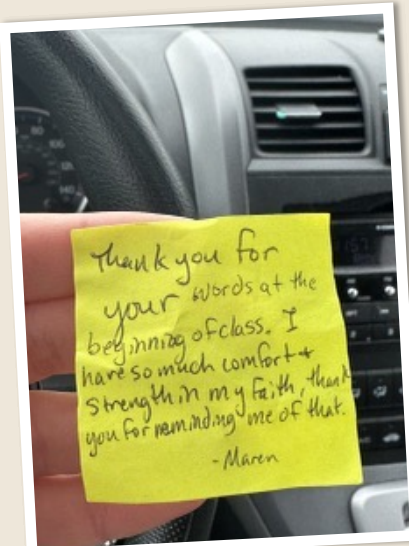 Thank you for
your words at the
beginning of class. I
have so much comfort +
strength in my faith, thank
you for reminding me of that.
- Maren